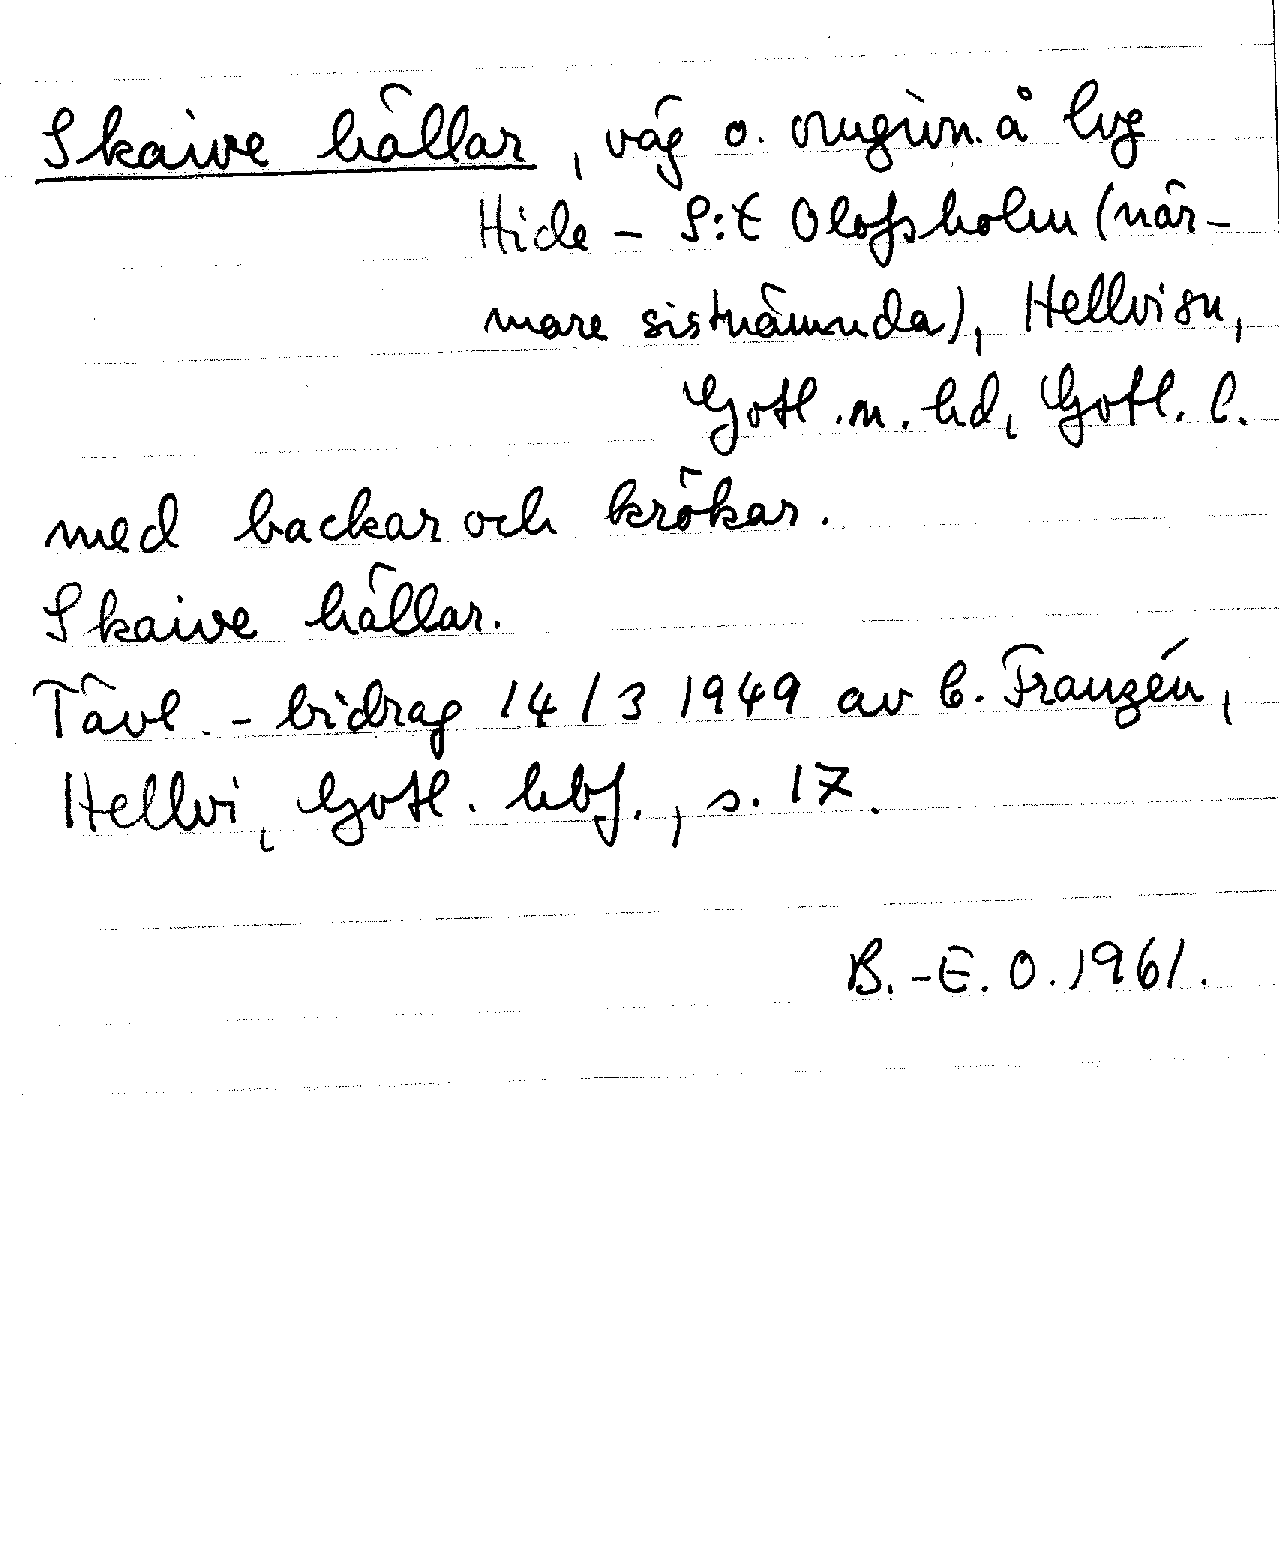 Skaive hällar, väg o. omgivn. å lvg
Hide – S:t Olofsholm (när-
mare sistnämnda), Hellvi sn,
Gotl. n. hd, Gotl. l.
med backar och krökar.
Skaive hällar.
Tävl.-bidrag 14/3 1949 av C. Franzén,
Hellvi, Gotl. hbf., s. 17.
B.-E. O. 1961.